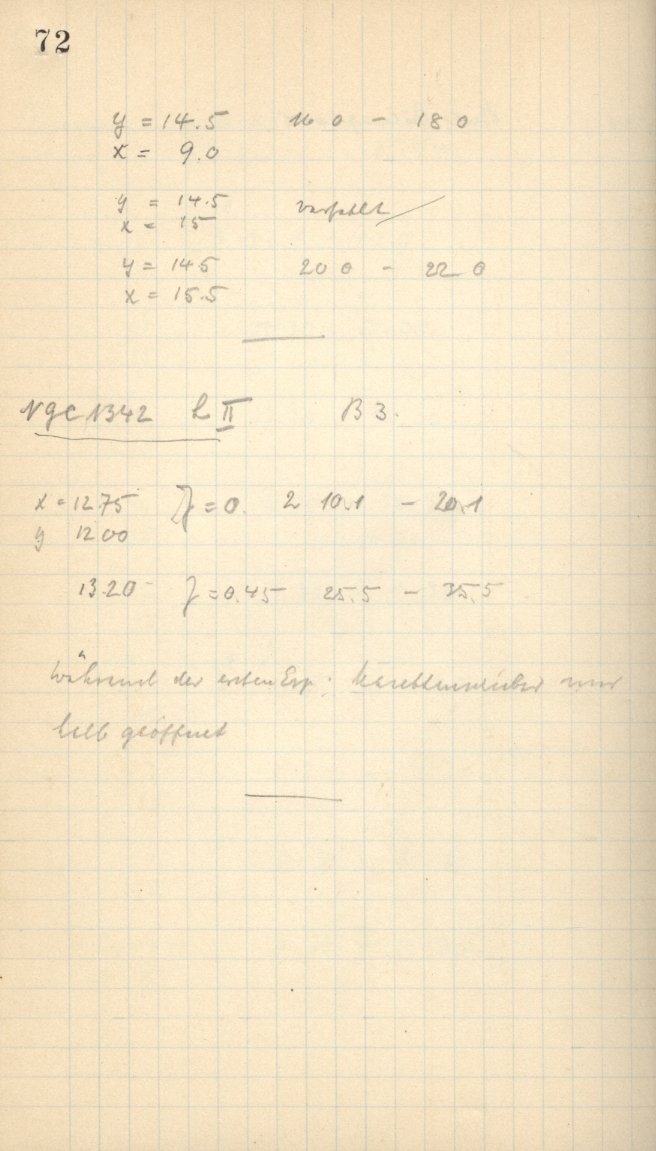 72
y = 14.5 16 0 - 18 0
x = 9.0
y = 14.5 verfehlt
x = 15
y = 14 5 20 0 - 22 0
x = 15.5
NGC 1342 L II B 3.
x = 12.75 J = 0. 2 10.1 - 20.1
y 12 00
13.20 J = 0.45 25.5 - 35.5
Während der ersten Exp. Kassettenschieber nur
halb geöffnet